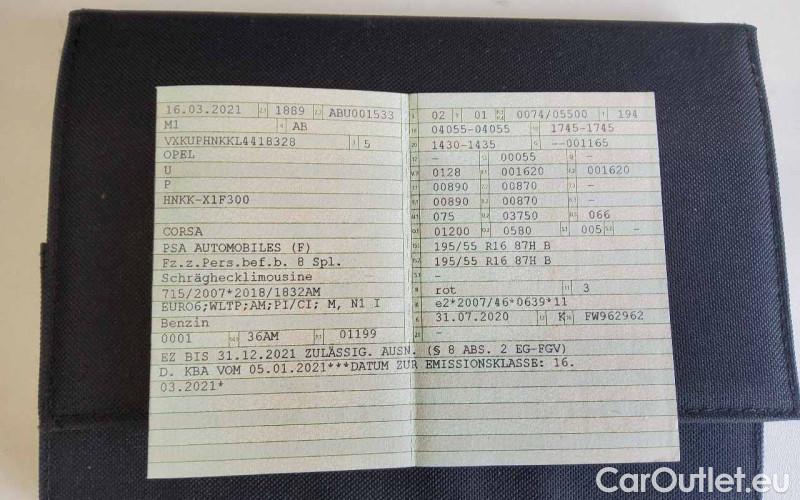 16.03.2021 1889 ABU001533
M1 AB
VXKUPHNKKL4418328 5
OPEL
U
P
HNKK-X1F300
CORSA
PSA AUTOMOBILES (F)
Fz.z.Pers.bef.b. 8 Spl.
Schräghecklimousine -
715/2007*2018/1832AM
EURO6;WLTP;AM;PI/CI; M, N1 I
Benzin
0001 36AM 01199
02 01 0074/05500 194
04055-04055 1745-1745
1430-1435 --001165
- 00055 -
0128 001620 001620
00890 00870 -
00890 00870 -
075 03750 066
01200 0580 005 -
195/55 R16 87H B
195/55 R16 87H B
-
rot 3
e2*2007/46*0639*11
31.07.2020 K FW962962
-
EZ BIS 31.12.2021 ZULÄSSIG. AUSN. (§ 8 ABS. 2 EG-FGV)
D. KBA VOM 05.01.2021***DATUM ZUR EMISSIONSKLASSE: 16.
03.2021*
CarOutlet.eu